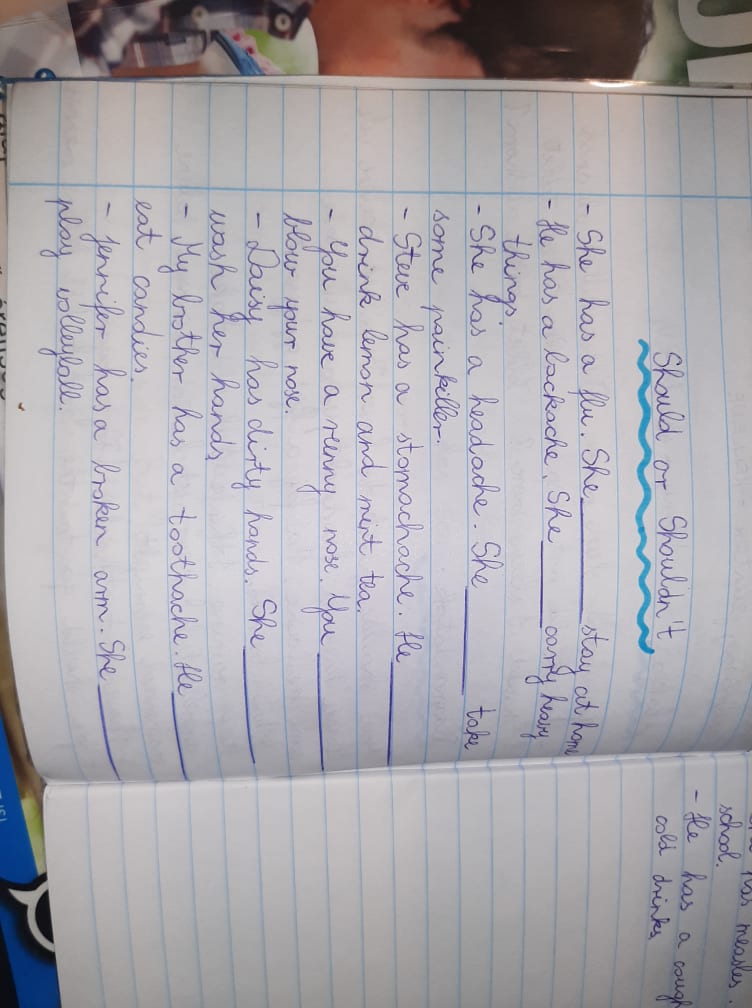 Should or Shouldn't
- She has a flu. She ______ stay at home
- He has a backache. She ______ carry heavy
things.
- She has a headache. She ______ take
some painkiller.
- Steve has a stomachache. He ______
drink lemon and mint tea.
- You have a runny nose. You ______
blow your nose.
- Daisy has dirty hands. She ______
wash her hands.
- My brother has a toothache. He ______
eat candies.
- Jennifer has a broken arm. She ______
play volleyball.
has measles.
school.
- He has a cough
cold drinks